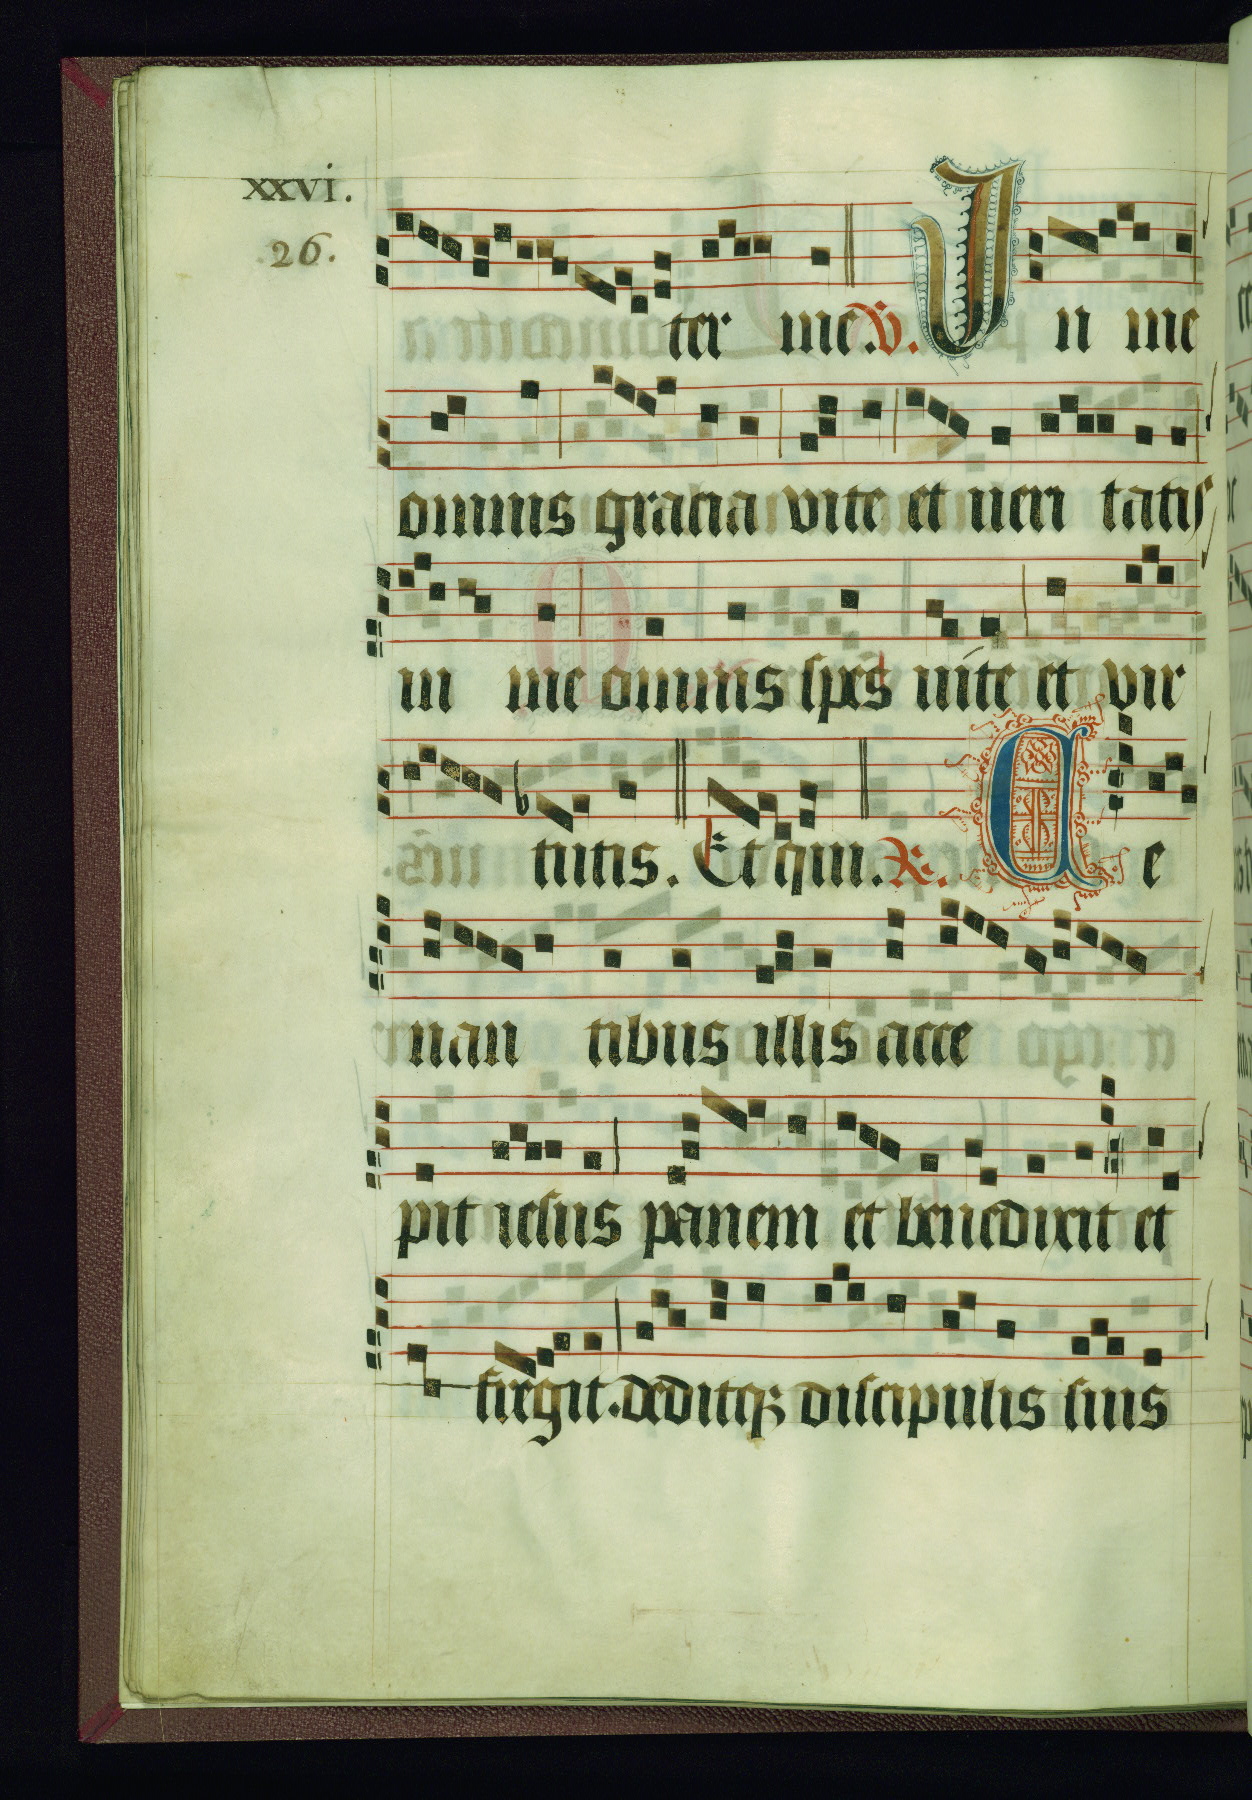 xxvi.
26.
ter me. V. In me
omnis gratia vite et veri tatis
in me omnis spes uite et vir
tutis. Et qui. R. C e
nan tibus illis acce
pit iesus panem et benedixit et
fregit. deditqz discipulis suis